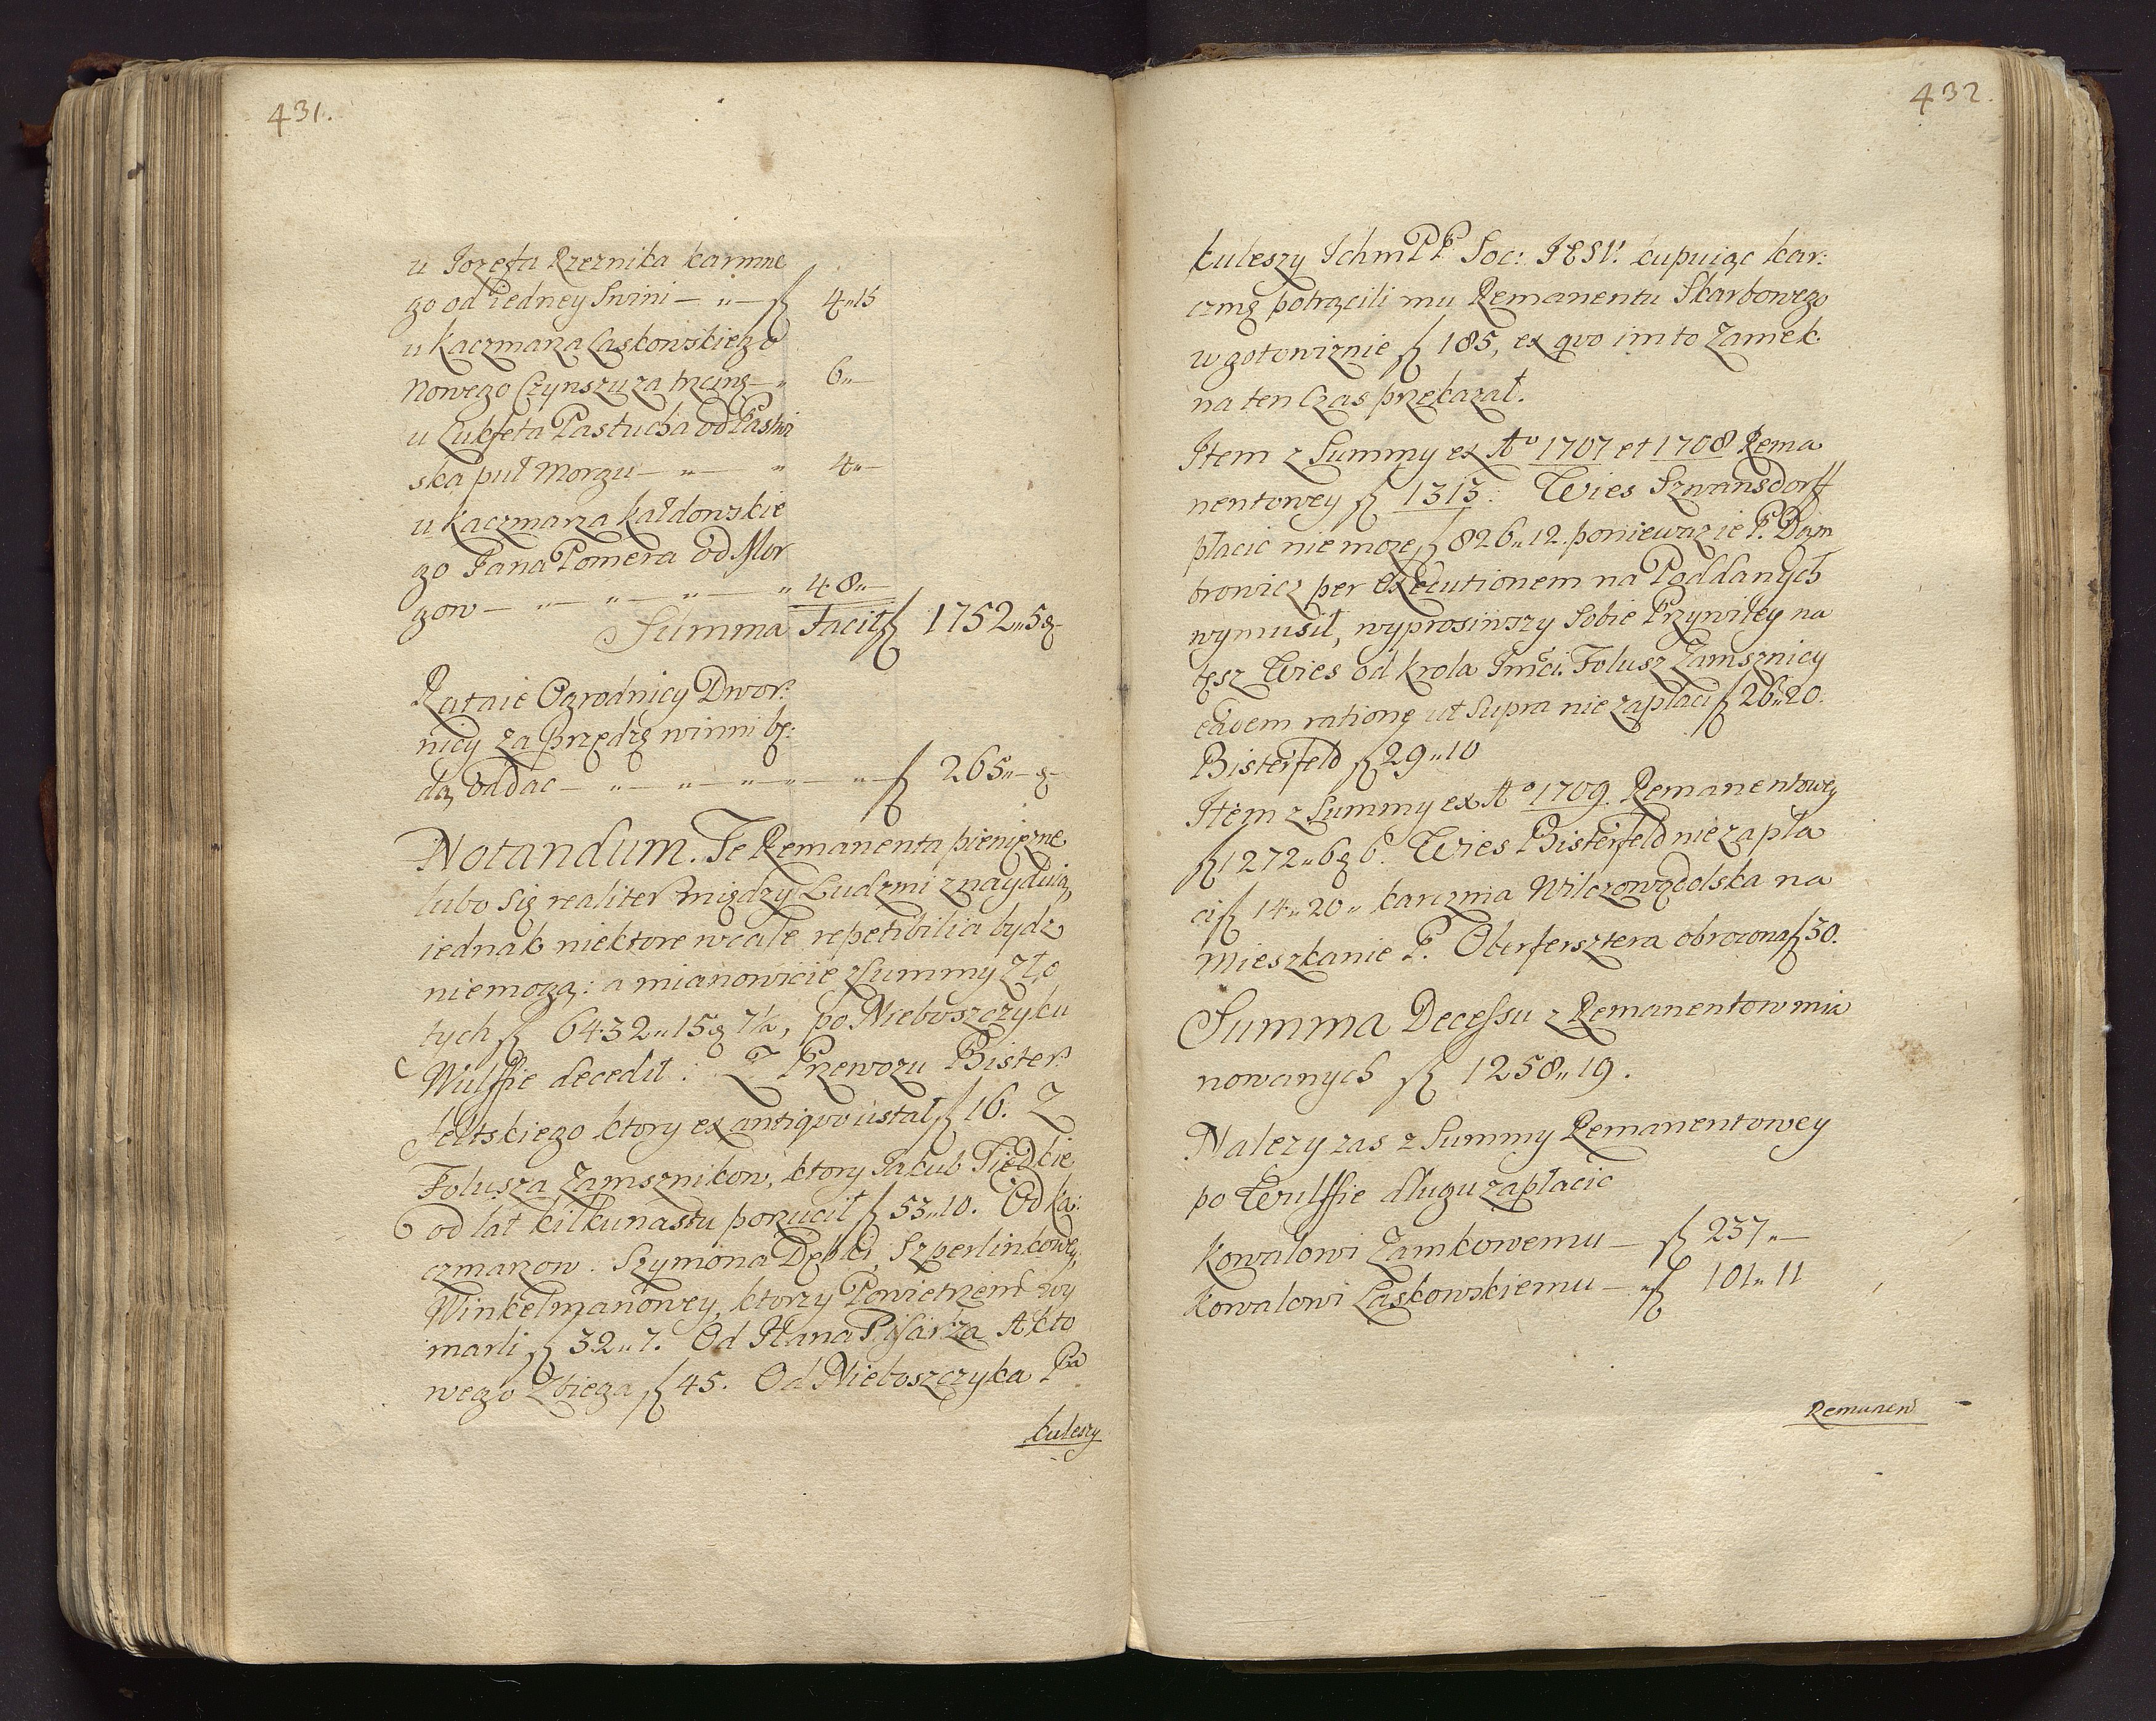 431.
u Jozefa Rzeznika karmne
go od iedney Swini — „ — fl 4„15
u Kaczmarza Laskowskiego
Nowego Czynszu za trcinę — „ 6„—
u Lukseta Pastucha od Pastwi
ska puł Morgu — „ — „ 4„—
u Kaczmarza Kałdowskie
go Jana Pomera od Mor
gow — „ — „ — „ — „ 48„—
Summa Facit fl 1752„5 g—
Rataie Ogrodnicy Dwor:
nicy za Przędzę winni bę:
dą oddac — „ — „ — „ — „ — fl 265„— g—
Notandum. Te Remanenta pienięzne
lubo się realiter między Ludzmi znayduią,
iednak niektore wcale repetibilia bydz
niemogą: a mianowicie z Summy Zło
tych fl 6432„15 g 7½, po Nieboszczyku
Wulffie decedit: Z Przewozu Bister:
feltskiego ktory ex antiquo ustał fl 16. Z
Folusza Zamsznikow, ktory Jakub Tiedkie
od lat kilkunastu porzucił fl 53„10. Od ka:
czmarzow. Szymona Dębki, Szperlinkowey,
Winkelmanowey, ktorzy Powietrzem wy
marli fl 32„7. Od Hana Pisarza Akto
wego Zbiega fl 45. Od Nieboszczyka Pa
Kuleszy
432.
Kuleszy Ichm PP. Soc: JESU: kupuiąc kar:
czmę potrącili mu Remanentu Skarbowego
w gotowiznie fl 185, ex quo im to Zamek
na ten Czas przekazał.
Item z Summy ex Aº 1707 et 1708 Rema
nentowey fl 1313: Wies Szwansdorff
płacic nie moze fl 826„12. poniewaz ie P. Dąm
browicz per Executionem na Poddanych
wymusił, wyprosiwszy Sobie Przywiley na
tęsz Wies od Krola Jmci. Folusz Zamsznicy
eadem ratione ut Supra nie zapłaci fl 26„20.
Bisterfeld fl 29„10
Item z Summy ex Aº 1709. Remanentowey
fl 1272„6 g 6. Wies Bisterfeld nie zapła
ci fl 14„20„ karczma Wilczowędolska na
Mieszkanie P. Oberfersztera obrocona fl 30.
Summa Decessu z Remanentow mia
nowanych fl 1258„19.
Nalezy zas z Summy Remanentowey
po Wulffie długu zapłacic
Kowalowi Zamkowemu — fl 237„—
Kowalowi Laskowskiemu — „ fl 101„11
Remanen